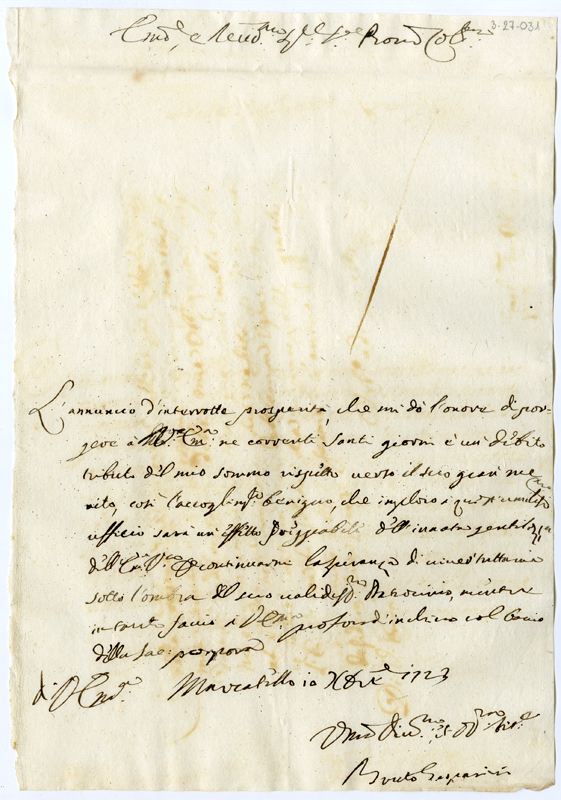 3-27-031
Em.º e Reud.mo Sig.r Sig.r Pron Col.mo
L'annuncio d'interrotte prosperità, che mi dò l'onore di por-
gere à V.ra Em.a ne correnti santi giorni è un debito
tributo del mio sommo rispetto verso il suo gran me
rito, così l'accoglim.to benigno, che imploro à quest' umiliss.mo
ufficio sarà un effetto dell'innata gentilezza
dell'Em.a V.ra continuarmi la speranza di
sotto l'ombra del suo validiss.mo Patrocinio, mentre
intanto faccio à V. Em.a profond' inchino col bacio
della Sac. porpora
di V. Em.a Mercatello 10 Xbre 1723
Umo Diu.mo et Obb.mo
Bruto Gasparini